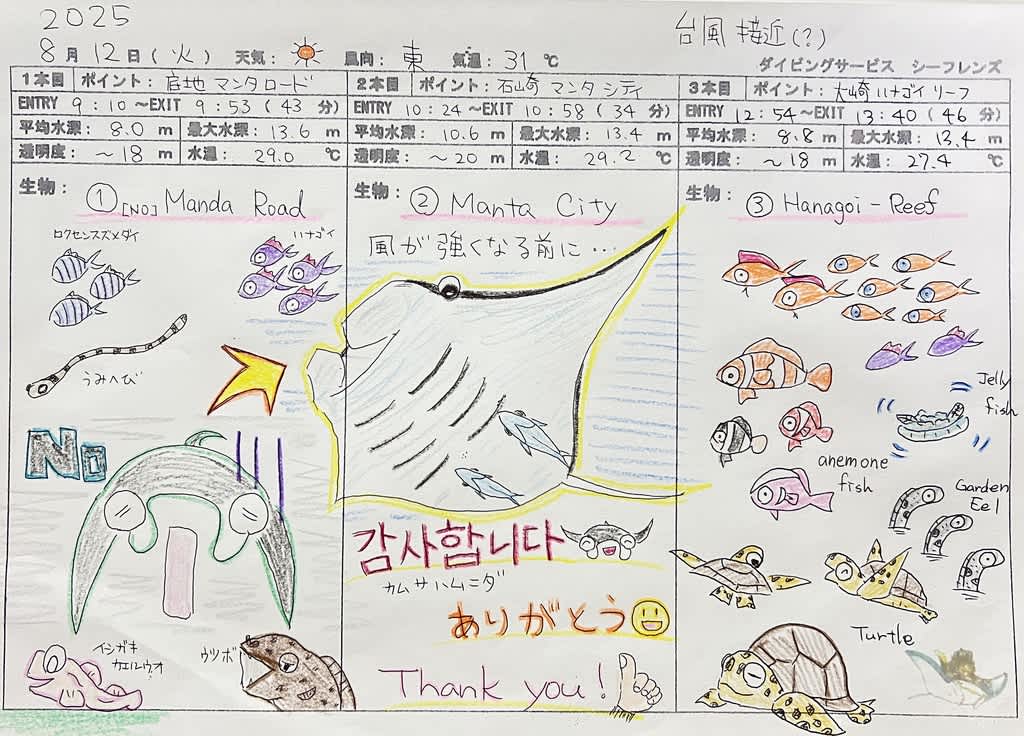 2025
台風 接近(?)
8月 12日(火) 天気: 風向: 東 気温: 31℃
ダイビングサービス シーフレンズ
1本目 ポイント: 底地 マンタロード
ENTRY 9:10 ~EXIT 9:53 (43 分)
平均水深: 8.0 m 最大水深: 13.6 m
透明度: ~18 m 水温: 29.0 ℃
生物:
① [NO] Manda Road
ロクセンスズメダイ
ハナゴイ
うみへび
No
イシガキカエルウオ
ウツボ
2本目 ポイント: 石崎 マンタシティ
ENTRY 10:24 ~EXIT 10:58 (34 分)
平均水深: 10.6 m 最大水深: 13.4 m
透明度: ~20 m 水温: 29.2 ℃
生物:
② Manta City
風が強くなる前に…
감사합니다
カムサハムニダ
ありがとう
Thank you!
3本目 ポイント: 大崎 ハナゴイリーフ
ENTRY 12:54 ~EXIT 13:40 (46 分)
平均水深: 8.8 m 最大水深: 13.4 m
透明度: ~18 m 水温: 27.4 ℃
生物:
③ Hanagoi-Reef
Jelly
fish
anemone
fish
Garden
Eel
Turtle